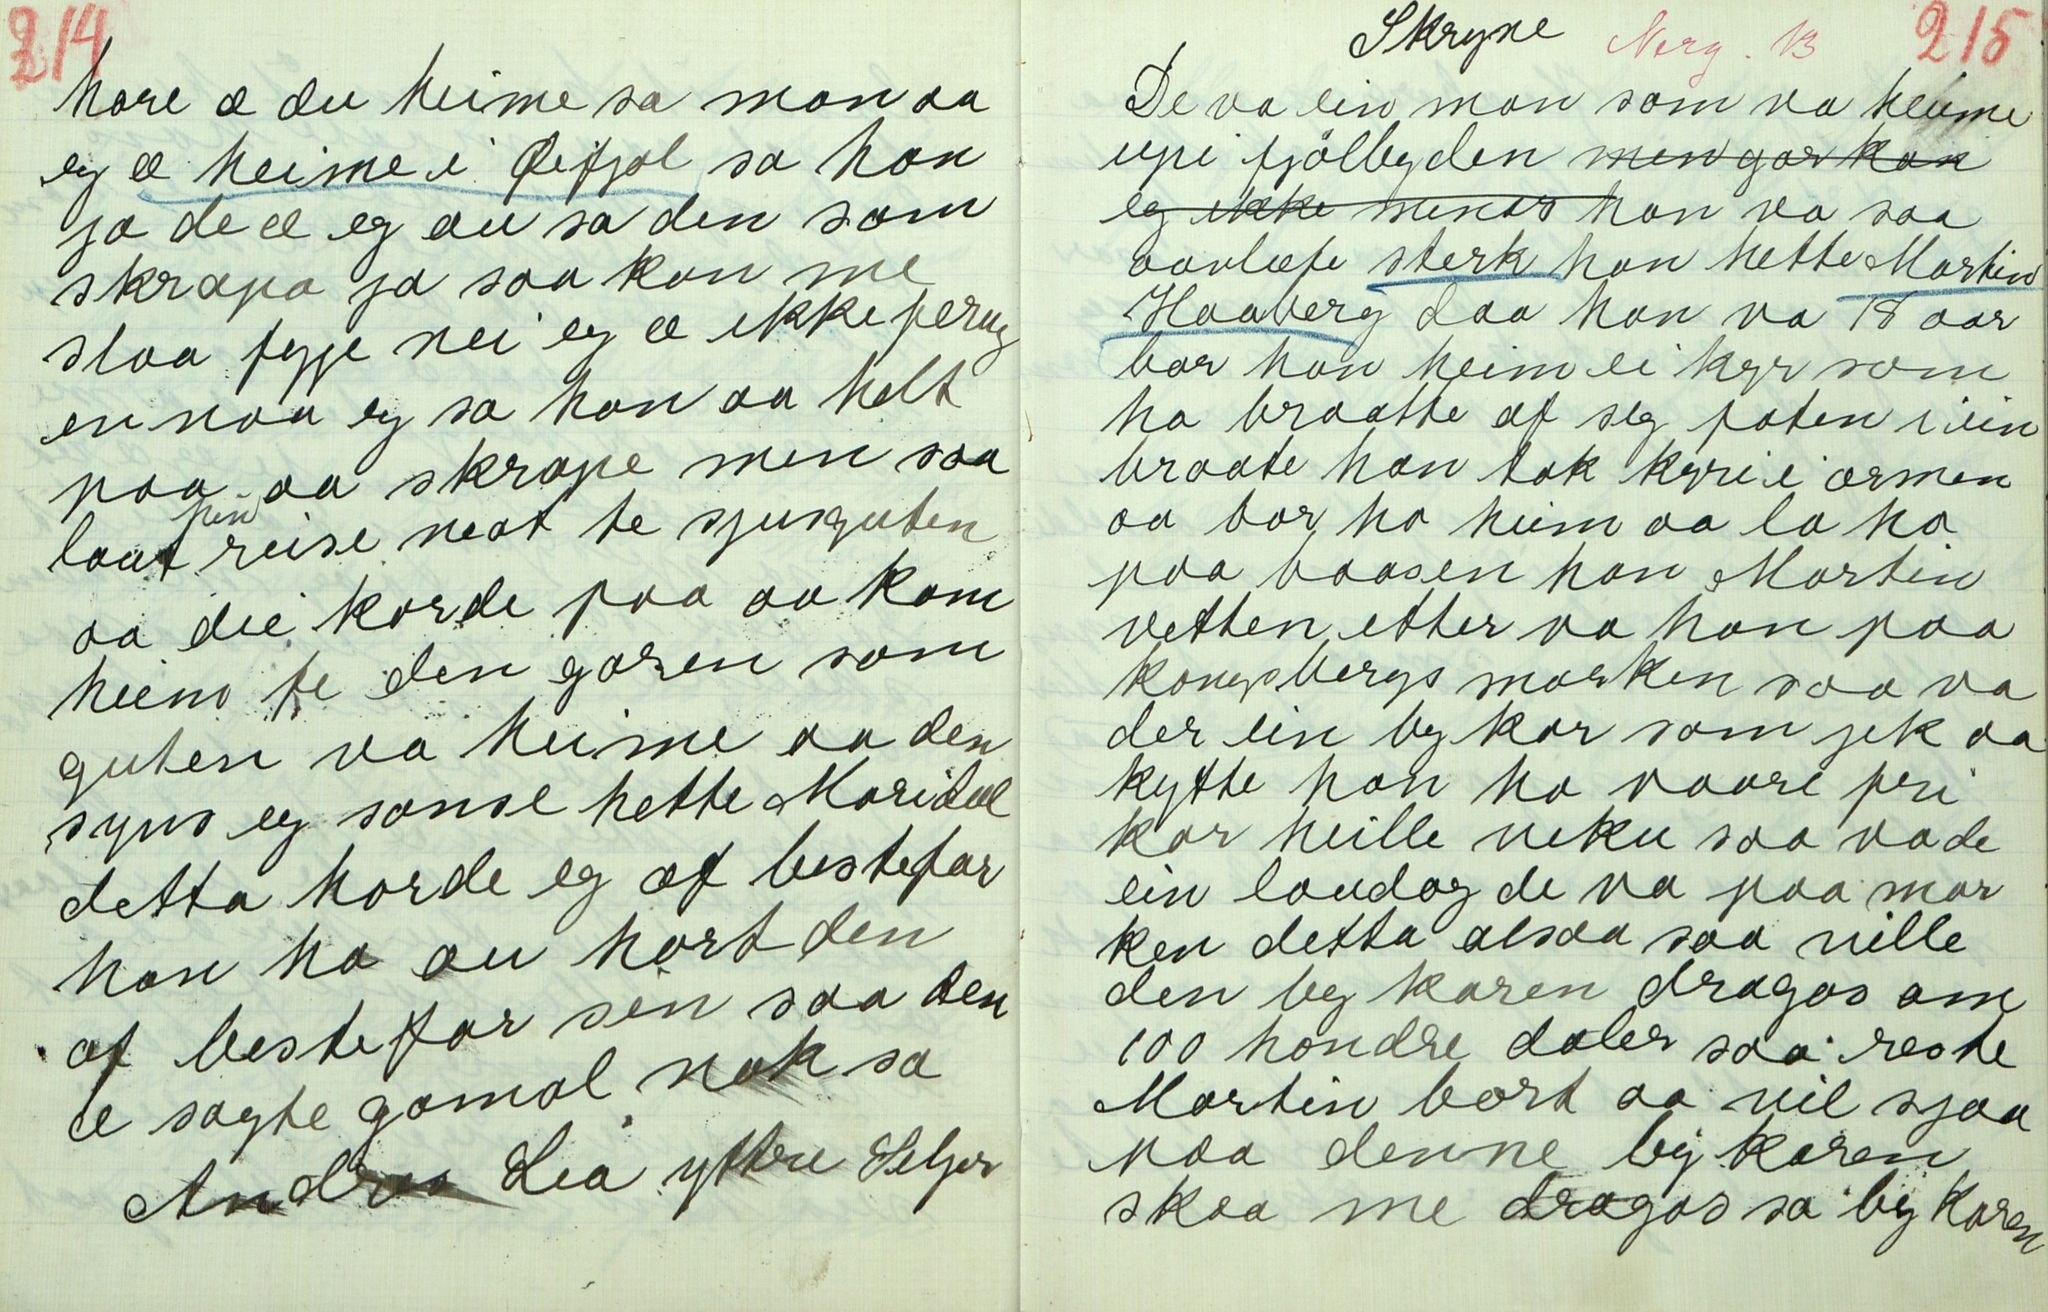 214
hore æ du heime sa mon aa
eg æ heime i Øifjol sa han
ja de æ eg au sa den som
skrapa ja saa kan me
slaa fyje nei eg æ ikke ferug
en naa eg sa han aa helt
paa aa skrape men saa
laut fen reise neat te sjusguten
aa dei korde paa aa kom
heim te den garen som
guten va heime aa den
syns eg sanse hette Maridal
detta horde eg af bestefar
han ha au hort den
af bestefar sin saa den
æ sagte gamal nok sa
Andres Lia yttre
Skryne Norg. B 215
De va ein man som va heime
upi fjölbygden men gar kan
eg ikke minas han va saa
aavlefe sterk han hette Martin
Haaberg daa han va 18 aar
bar han heim ei kyr som
ha braatte af seg foten i ein
braate han tok kyri i armen
aa bar ho heim aa la ho
paa baasen han Martin
vetten etter va han paa
kongsbergs marken saa va
der ein by kar som jek aa
kytte han ha vaare fri
kar heille veku saa va de
ein laudag de va paa mar
ken detta alsaa saa ville
den by karen dragas om
100 hondre daler saa reste
Martin bort aa vil sjaa
paa denne by karen
skaa me dragas sa by karen